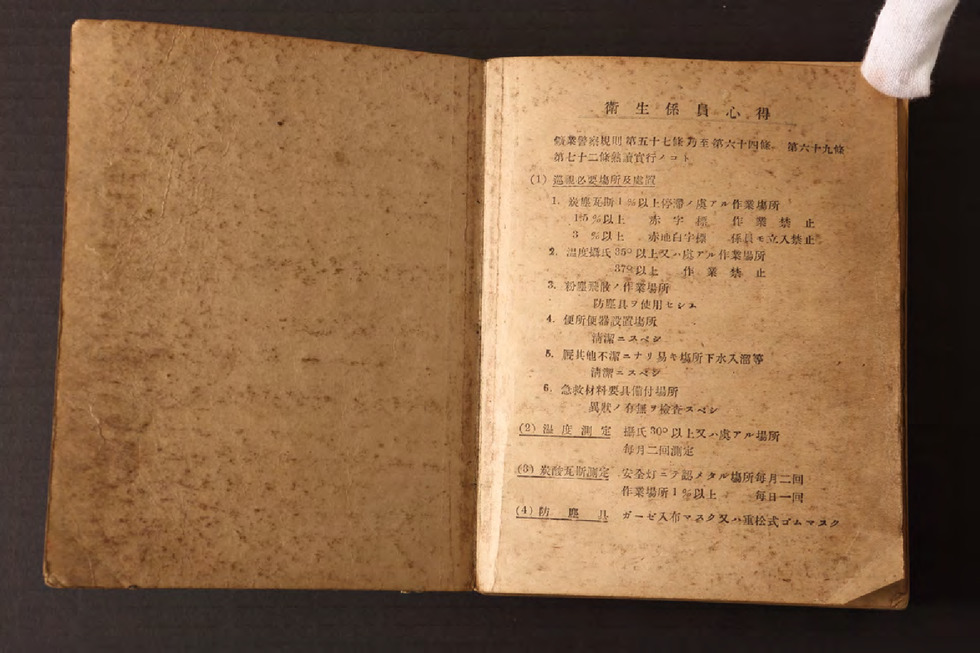 衛生係員心得
鑛業警察規則第五十七條乃至第六十四條、第六十九條
第七十二條熟讀實行ノコト
(1) 巡視必要場所及處置
1. 炭酸瓦斯1%以上停滯ノ處アル作業場所
1.5%以上 赤字標 作業禁止
3 %以上 赤地白字標 係員モ立入禁止
2. 温度攝氏35°以上又ハ處アル作業場所
37°以上 作業禁止
3. 粉塵飛散ノ作業場所
防塵具ヲ使用セシム
4. 便所便器設置場所
清潔ニスベシ
5. 厩其他不潔ニナリ易キ場所下水入溜等
清潔ニスベシ
6. 急救材料要具備付場所
異狀ノ有無ヲ檢査スベシ
(2) 温度測定 攝氏30°以上又ハ處アル場所
毎月二回測定
(3) 炭酸瓦斯測定 安全灯ニテ認メタル場所毎月二回
作業場所1%以上 毎日一回
(4) 防塵具 ガーゼ入布マスク又ハ重松式ゴムマスク